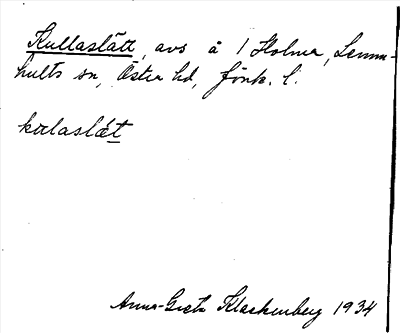 Kullaslätt, avs å 1 Holma, Lemn-
hults sn, Östra hd, Jönk. l.
kɷlaslǽt
Anna-Greta Klackenberg 1934